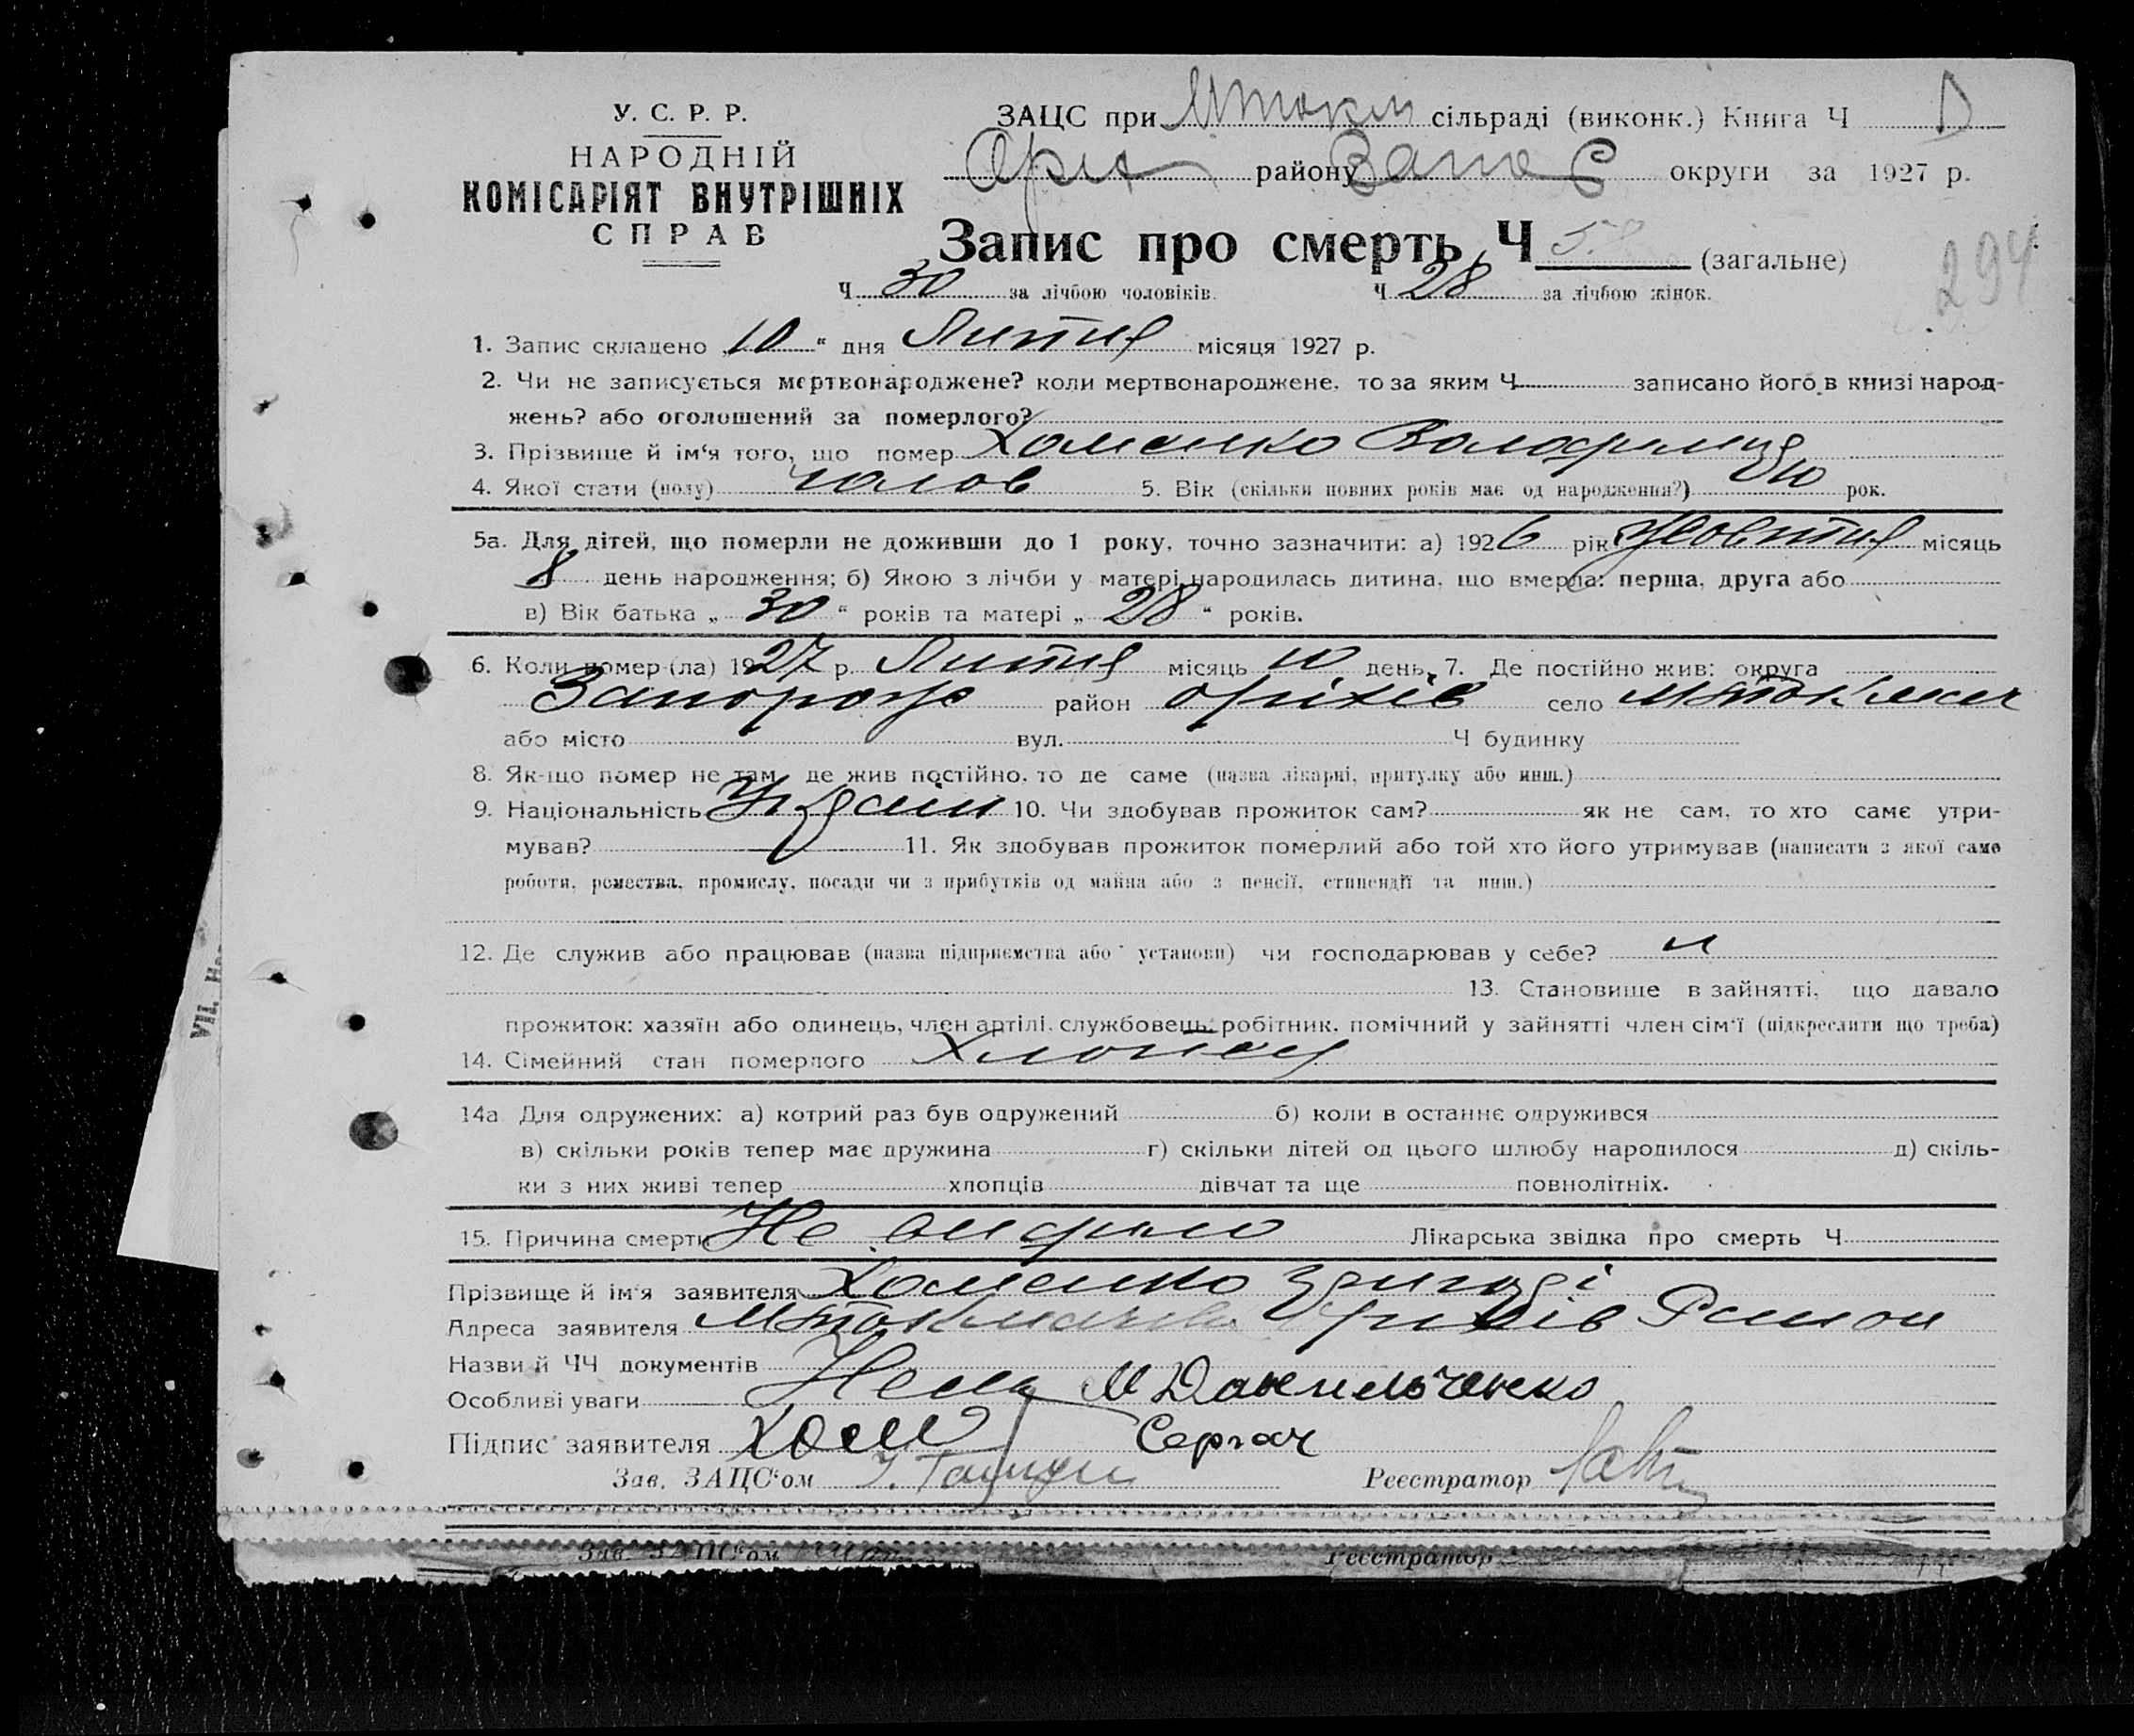 У. С. Р. Р.
НАРОДНІЙ
КОМІСАРІЯТ ВНУТРІШНІХ
СПРАВ
ЗАЦС при Мтокм сільраді (виконк.) Книга Ч
Оріх району Запо округи за 1927 р.
Запис про смерть Ч 58 (загальне)
294
Ч 30 за лічбою чоловіків. Ч 28 за лічбою жінок.
1. Запис складено „10“ дня Липня місяця 1927 р.
2. Чи не записується мертвонароджене? коли мертвонароджене, то за яким Ч записано його в книзі народ-
жень? або оголошений за померлого?
3. Прізвище й ім‘я того, що помер Хоменко Володимир
4. Якої стати (полу) чолов 5. Вік (скільки повних років має од народження?) рок.
5а. Для дітей, що померли не доживши до 1 року, точно зазначити: а) 1926 рік Жовтня місяць
8 день народження; б) Якою з лічби у матері народилась дитина, що вмерла: перша, друга або
в) Вік батька „30“ років та матері „28“ років.
6. Коли помер (ла) 1927 р. Липня місяць 10 день, 7. Де постійно жив: округа
Запорож район Оріхів село
або місто вул. Ч будинку
8. Як-що помер не там, де жив постійно, то де саме (назва лікарні, притулку або инш.)
9. Національність Україн 10. Чи здобував прожиток сам? як не сам, то хто саме утри-
мував? 11. Як здобував прожиток померлий або той хто його утримував (написати з якої само
роботи, ремества, промислу, посади чи з прибутків од майна або з пенсії, стипендії та инш.)
12. Де служив або працював (назва підприємства або установи) чи господарював у себе?
13. Становище в зайнятті, що давало
прожиток: хазяїн або одинець, член артілі, службовець, робітник, помічний у зайнятті член сім‘ї (підкреслити що треба)
14. Сімейний стан померлого Хлопець
14а Для одружених: а) котрий раз був одружений б) коли в останнє одружився
в) скільки років тепер має дружина г) скільки дітей од цього шлюбу народилося д) скіль-
ки з них живі тепер хлопців дівчат та ще повнолітніх.
15. Причина смерти Не Лікарська звідка про смерть Ч
Прізвище й ім‘я заявителя Хоменко Григорі
Адреса заявителя Оріхів
Назви й ЧЧ документів
Особливі уваги Нема М Данильченко
Підпис заявителя Хом Сергач
Зав. ЗАЦС‘ом Реєстратор
Зав. ЗАЦС‘ом Реєстратор